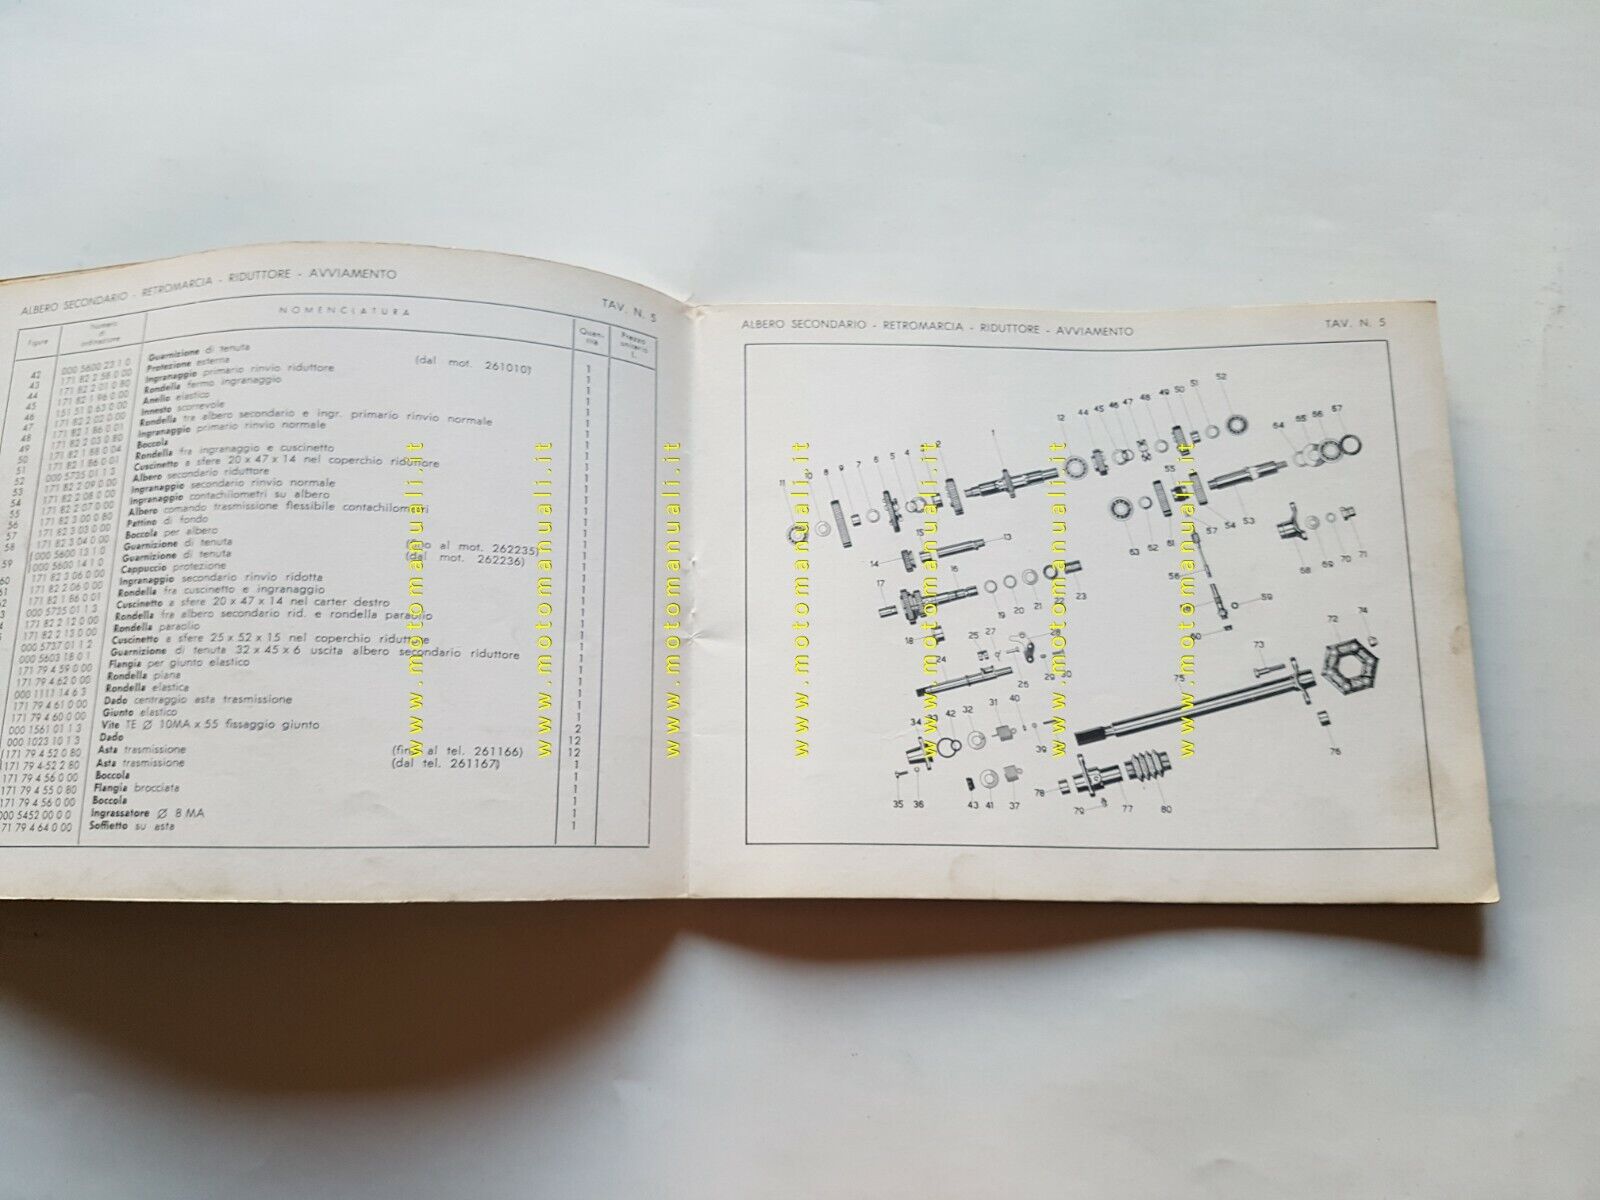 ALBERO SECONDARIO - RETROMARCIA - RIDUTTORE - AVVIAMENTO
TAV. N. 5
Figure
Numero di ordinazione
NOMENCLATURA
Quantità
Prezzo unitario L.
42 000 5600 23 1 0 Guarnizione di tenuta 1
43 171 82 2 58 0 00 Protezione esterna (dal mot. 261010) 1
44 171 82 2 01 0 80 Ingranaggio primario rinvio riduttore 1
45 171 82 1 96 0 00 Rondella fermo ingranaggio 1
46 151 51 0 63 0 00 Anello elastico 1
47 171 82 2 02 0 00 Innesto scorrevole 1
48 171 82 1 86 0 01 Rondella fra albero secondario e ingr. primario rinvio normale 1
49 171 82 2 03 0 80 Ingranaggio primario rinvio normale 1
50 171 82 1 88 0 04 Boccola 1
51 171 82 1 86 0 01 Rondella fra ingranaggio e cuscinetto 1
52 000 5735 01 1 3 Cuscinetto a sfere 20 x 47 x 14 nel coperchio riduttore 1
53 171 82 2 09 0 00 Albero secondario riduttore 1
54 171 82 2 08 0 00 Ingranaggio secondario rinvio normale 1
55 171 82 2 07 0 00 Ingranaggio contachilometri su albero 1
56 171 82 3 00 0 80 Albero comando trasmissione flessibile contachilometri 1
57 171 82 3 03 0 00 Pattino di fondo 1
58 171 82 3 04 0 00 Boccola per albero 1
59 000 5600 13 1 0 Guarnizione di tenuta (fino al mot. 262235) 1
000 5600 14 1 0 Guarnizione di tenuta (dal mot. 262236) 1
60 171 82 3 06 0 00 Cappuccio protezione 1
171 82 2 06 0 00 Ingranaggio secondario rinvio ridotta 1
171 82 1 86 0 01 Rondella fra cuscinetto e ingranaggio 1
000 5735 01 1 3 Cuscinetto a sfere 20 x 47 x 14 nel carter destro 1
171 82 2 12 0 00 Rondella fra albero secondario rid. e rondella paraolio 1
171 82 2 13 0 00 Rondella paraolio 1
000 5737 01 1 2 Cuscinetto a sfere 25 x 52 x 15 nel coperchio riduttore 1
000 5603 18 0 1 Guarnizione di tenuta 32 x 45 x 6 uscita albero secondario riduttore 1
171 79 4 59 0 00 Flangia per giunto elastico 1
171 79 4 62 0 00 Rondella piana 1
000 1111 14 6 3 Rondella elastica 1
171 79 4 61 0 00 Dado centraggio asta trasmissione 1
171 79 4 60 0 00 Giunto elastico 2
000 1561 01 1 3 Vite TE Ø 10MA x 55 fissaggio giunto 12
000 1023 10 1 3 Dado 12
171 79 4 52 0 80 Asta trasmissione (fino al tel. 261166) 1
171 79 4 52 2 80 Asta trasmissione (dal tel. 261167) 1
171 79 4 56 0 00 Boccola 1
171 79 4 55 0 80 Flangia brocciata 1
171 79 4 56 0 00 Boccola 1
000 5452 00 0 0 Ingrassatore Ø 8 MA 1
171 79 4 64 0 00 Soffietto su asta 1
ALBERO SECONDARIO - RETROMARCIA - RIDUTTORE - AVVIAMENTO
TAV. N. 5
11 10 8 9 7 6 5 4 3 2 1 12 44 45 46 47 48 49 50 51 52
54 65 66 57
63 52 61 55 57 54 53
68 69 70 71
15 13 14 16 17 18 19 20 21 22 23
58 59 60
24 25 27 26 28 29 30
72 74 73 75 76
34 33 42 32 31 40 39
35 36 43 41 37
78 79 77 80
www.motomanuali.it
www.motomanuali.it
www.motomanuali.it
www.motomanuali.it
www.motomanuali.it
www.motomanuali.it